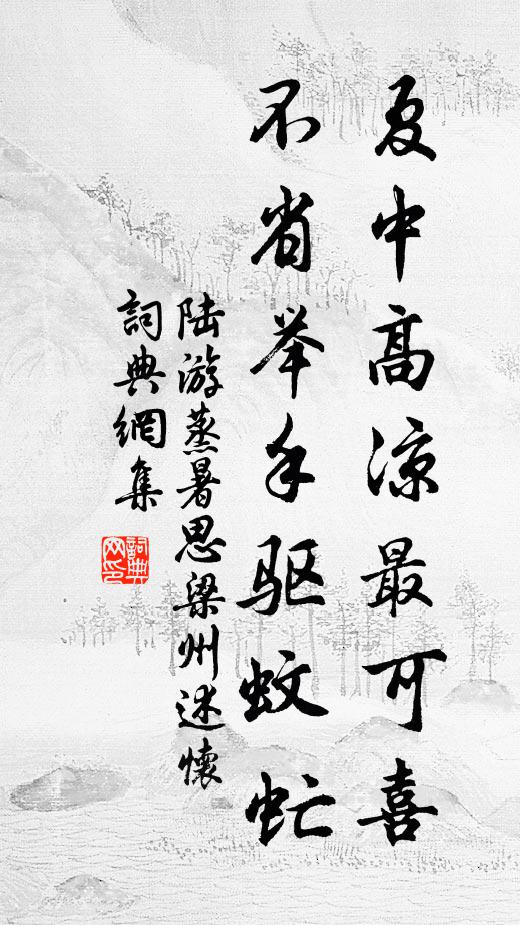 夏中高凉最可喜
不省举手驱蚊虻
陆游蒸暑思梁州述懷
詞典網集
詞典网印